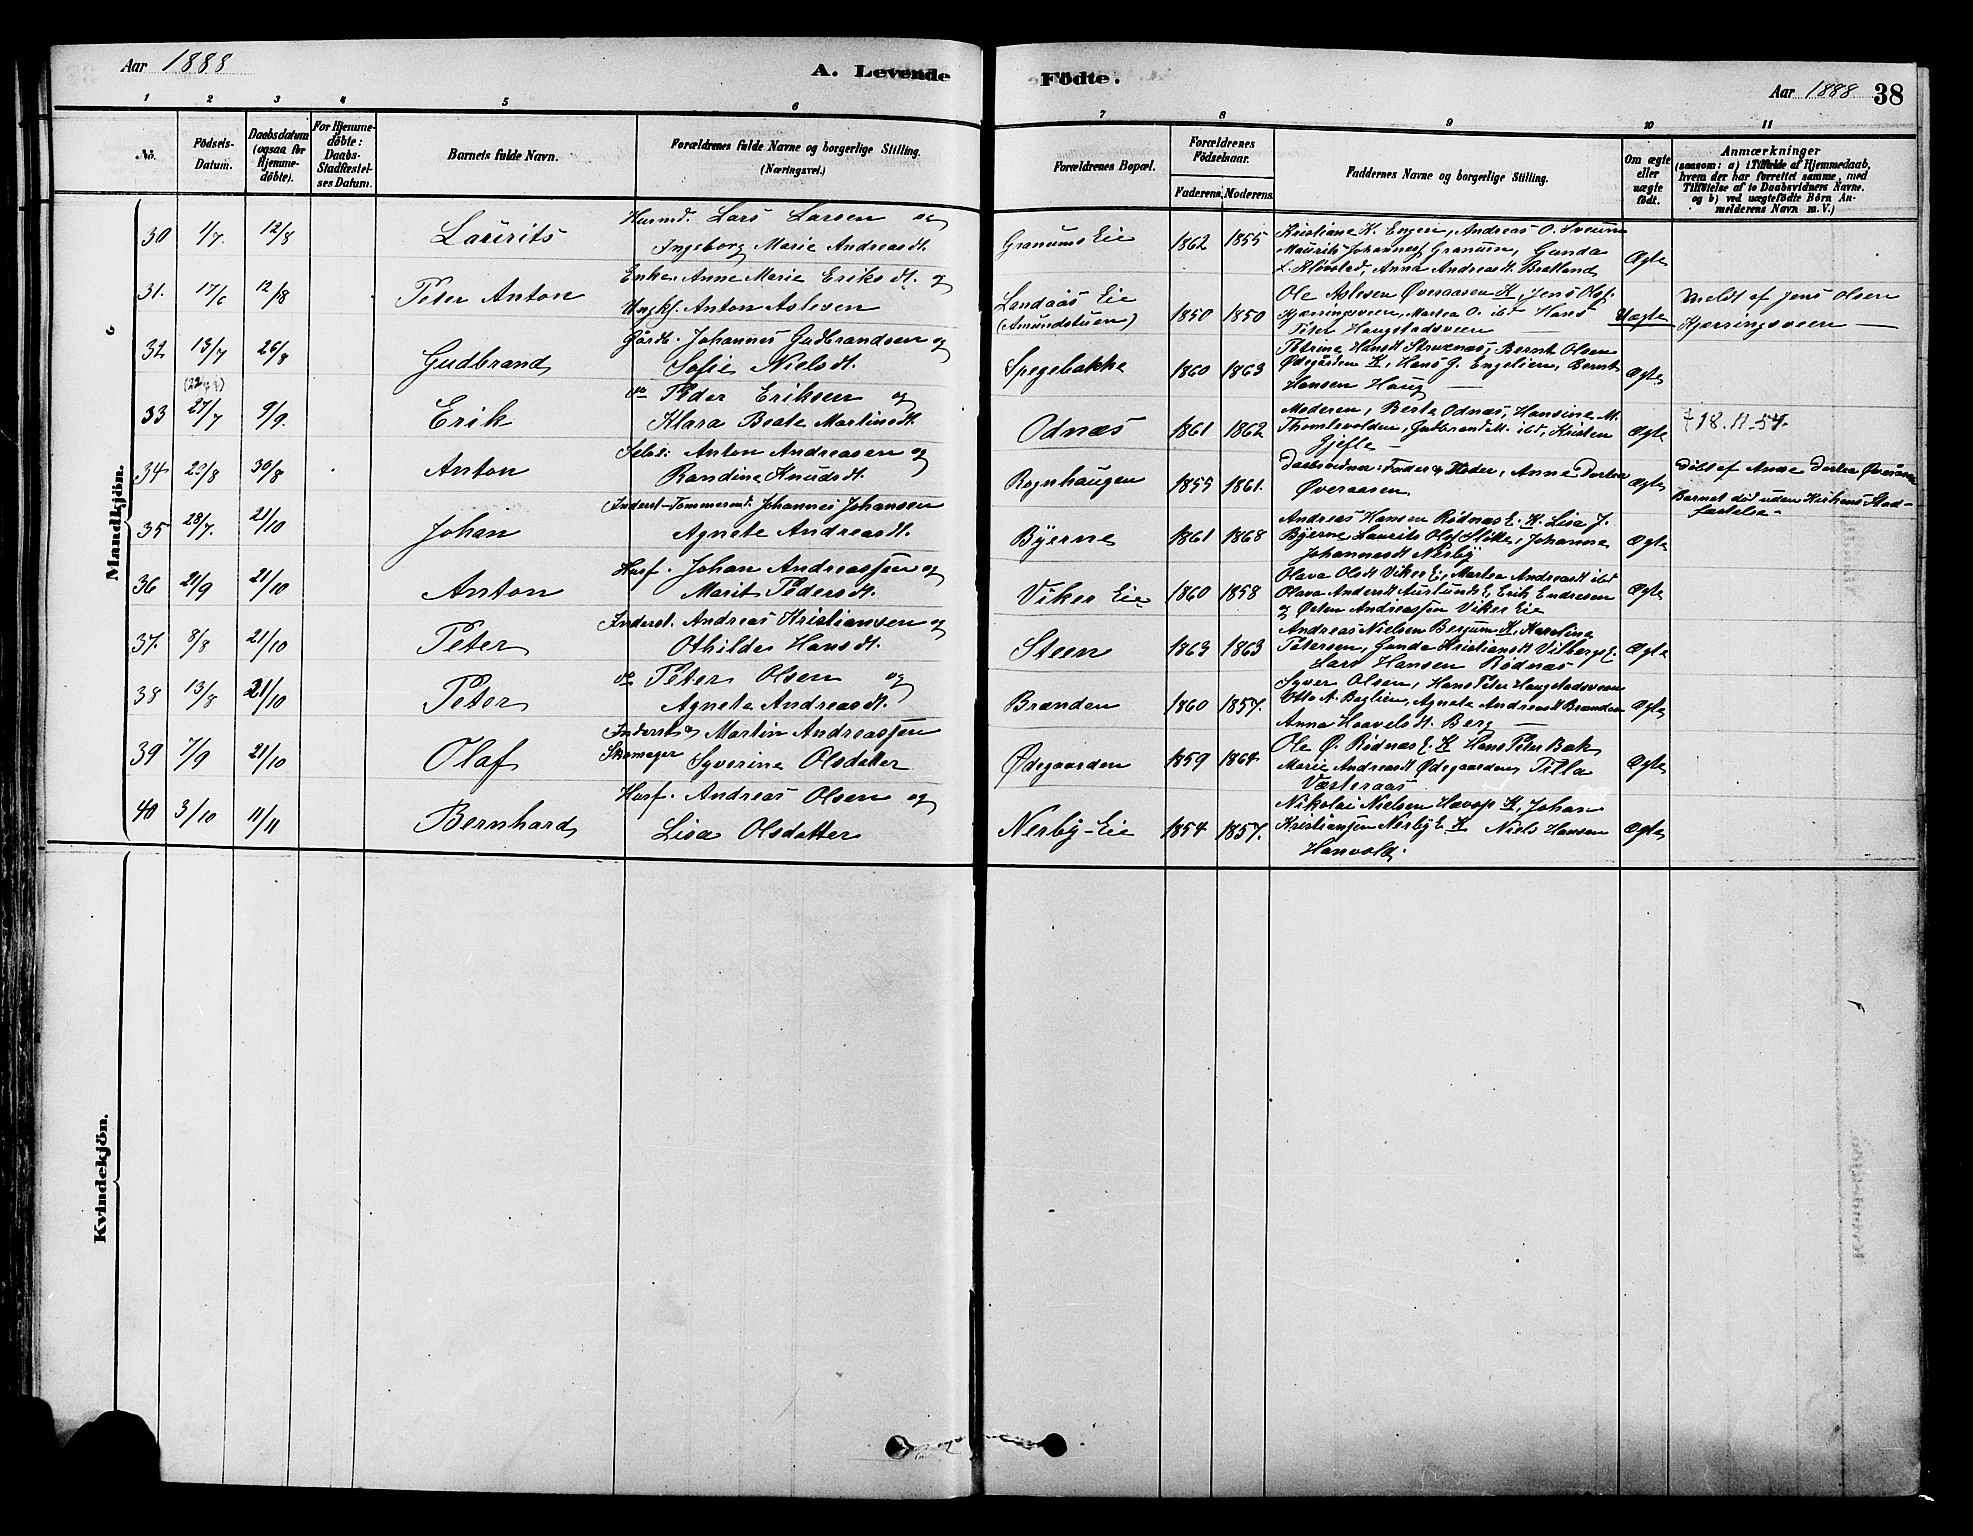 Aar 1888
A. Levende
Födte.
Aar 1888
38
1 2 3 4 5 6
7 8 9 10 11
No.
Födsels-Datum.
Daabsdatum (ogsaa for Hjemme-döbte).
For Hjemme-döbte: Daabs-Stadfæstel-ses Datum.
Barnets fulde Navn.
Forældrenes fulde Navne og borgerlige Stilling.
(Næringsvei.)
Forældrenes Bopæl.
Forældrenes Födselsaar.
Faderens. Moderens.
Faddernes Navne og borgerlige Stilling.
Om ægte eller uægte födt.
Anmærkninger
(saasom: a) i Tilfælde af Hjemmedaab,
hvem der har forrettet samme, med
Tilföielse af to Daabsvidners Navne.
og b) ved uægtefödte Börn An-
melderens Navn m. V.)
Mandkjön.
30 1/7. 12/8 Laurits Husmd. Lars Larsen og
Ingeborg Marie Andreasdt.
Granums Eie 1862 1855
Kristiane K. Engen, Andreas O. Sveum
Maurits Johannesf Granum, Gunda
Anna Andreasdt. Bratland
Ægte
31. 17/6 12/8 Peter Anton Enke. Anne Marie Eriksdt. og
Ungkf. Anton Aslesen
Landaas Eie
(Amundstuen) 1850 1850
Ole Aslesen Øveraasen K, Jens Olsf.
Kjærringsveen, Martea O. ibd Hans
Peter Haugstadsveen
Uægte
Meldt af Jens Olsen
Kjærringsveen
32 13/7 26/8 Gudbrand Gårdb. Johannes Gudbrandsen og
Sofie Nielsdt.
Spegebakke 1860 1863
Petrine Hansdt Strøznæs, Bernt Olsen
Ødegården K, Hans G. Engelien, Bernt
Hansen Haug
Ægte
33 27/7 9/9. Erik do Peder Eriksen og
Klara Beate Martinsdt.
Odnæs 1861 1862
Moderen, Berte Odnæs, Hansine M.
Thomlevolden, Gudbrand M. ibd, Kristen
Gjefle
Ægte
† 18.11.54.
34 29/8 30/8 Anton Selve: Anton Andreasen og
Randine Knudsdt.
Rognhaugen 1855 1861.
Daabsvidner: Fader og Moder, Anne Dortea
Øveraasen
Ægte
Døbt af Anne Dortea Øveraasen
Barnet død uden Kirkens Stad-
fæstelse
35 28/7. 21/10 Johan Inderst-Tømmermd. Johannes Johansen
Agnete Andreasdt.
Byerne 1861 1868
Andreas Hansen Rødnæs E. K. Lisa J.
Byerne Laurits Olsf Slåtte, Johanne
Johannesdt Nerby
Ægte
36 21/9 21/10 Anton Husf. Johan Andreassen og
Marit Pedersdt.
Viker Eie 1860 1858
Olava Olsdt Viker Ei, Martea Andreasdt ibd
Olava Andersdt Austlunds E, Erik Endresen
og Østen Andreassen Viker Eie
Ægte
37. 8/8 21/10 Peter Inderst. Andreas Kristiansen og
Othilde Hansdt.
Steen 1863 1863
Andreas Nielsen Bergum K, Karoline
Petersen, Gunda Kristiansdt Vilbergs E.
Lars Hansen Rødnæs
Ægte
38 13/8 21/10 Peter do Peter Olsen og
Agnete Andreasdt.
Brænden 1860 1857.
Syver Olsen, Hans Peter Haugstadsveen
Otto A. Baglien, Agnete Andreasdt Brænden
Anna Haavelsdt. Berg
Ægte
39 7/9 21/10 Olaf Inderst & Martin Andreassen
Skomager Syverine Olsdatter
Ødegaarden 1859 1864
Ole Ø. Rødnæs E. K Hans Peter Bak
Marie Andreasdt Ødegaarden, Tilla
Vasteraas
Ægte
40 3/10 11/11 Bernhard Husf. Andreas Olsen og
Lisa Olsdatter
Nerby-Eie 1854 1857.
Nikolai Nielsen Havop K, Johan
Kristiansen Nerby E. K Niels Hansen
Hanvold.
Ægte
Kvindekjön.